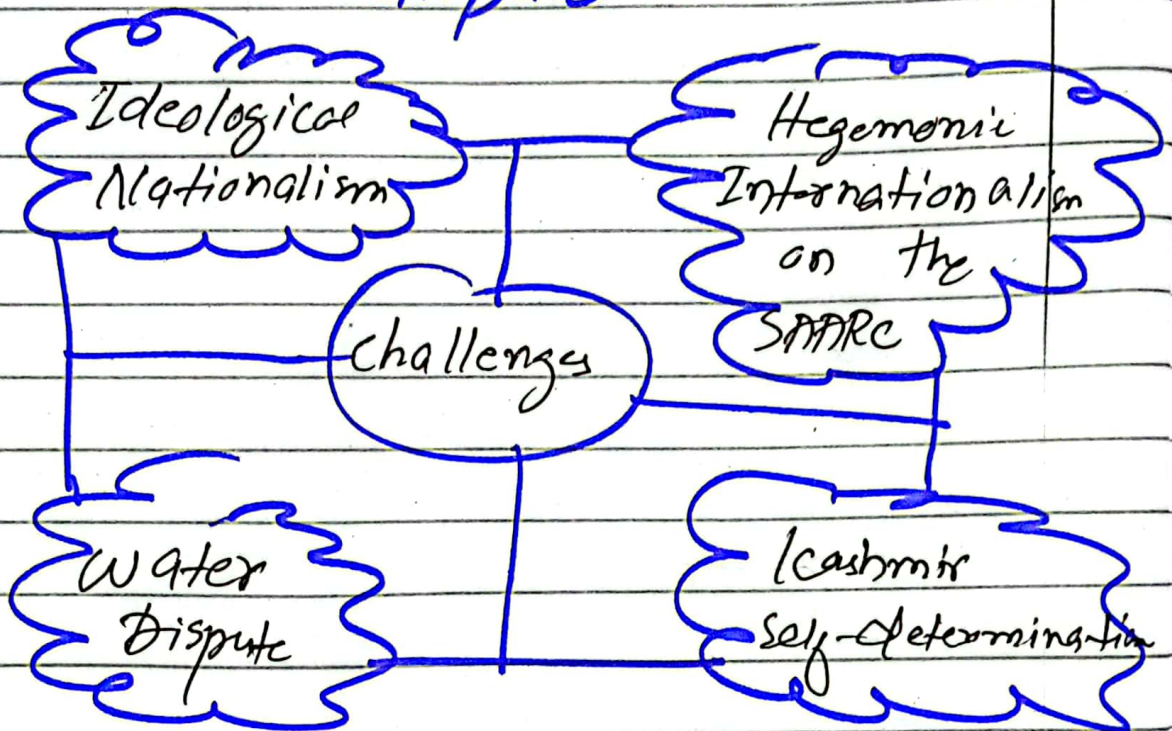 Ideological
Nationalism
Hegemonic
Internationalism
on the
SAARC
Challenges
Water
Dispute
Kashmir
Self-determination